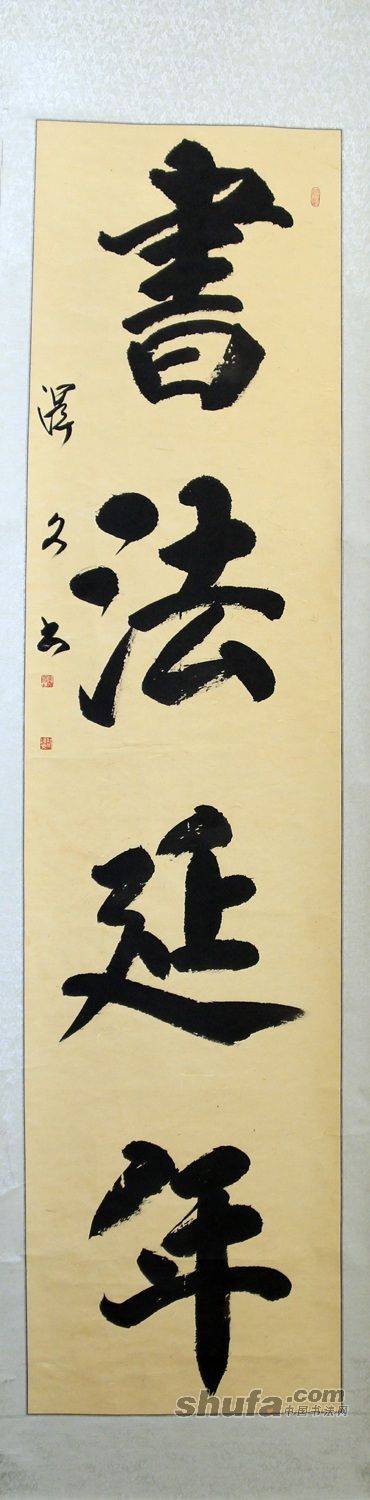 書法延年
久书
shufa.com
中国书法网